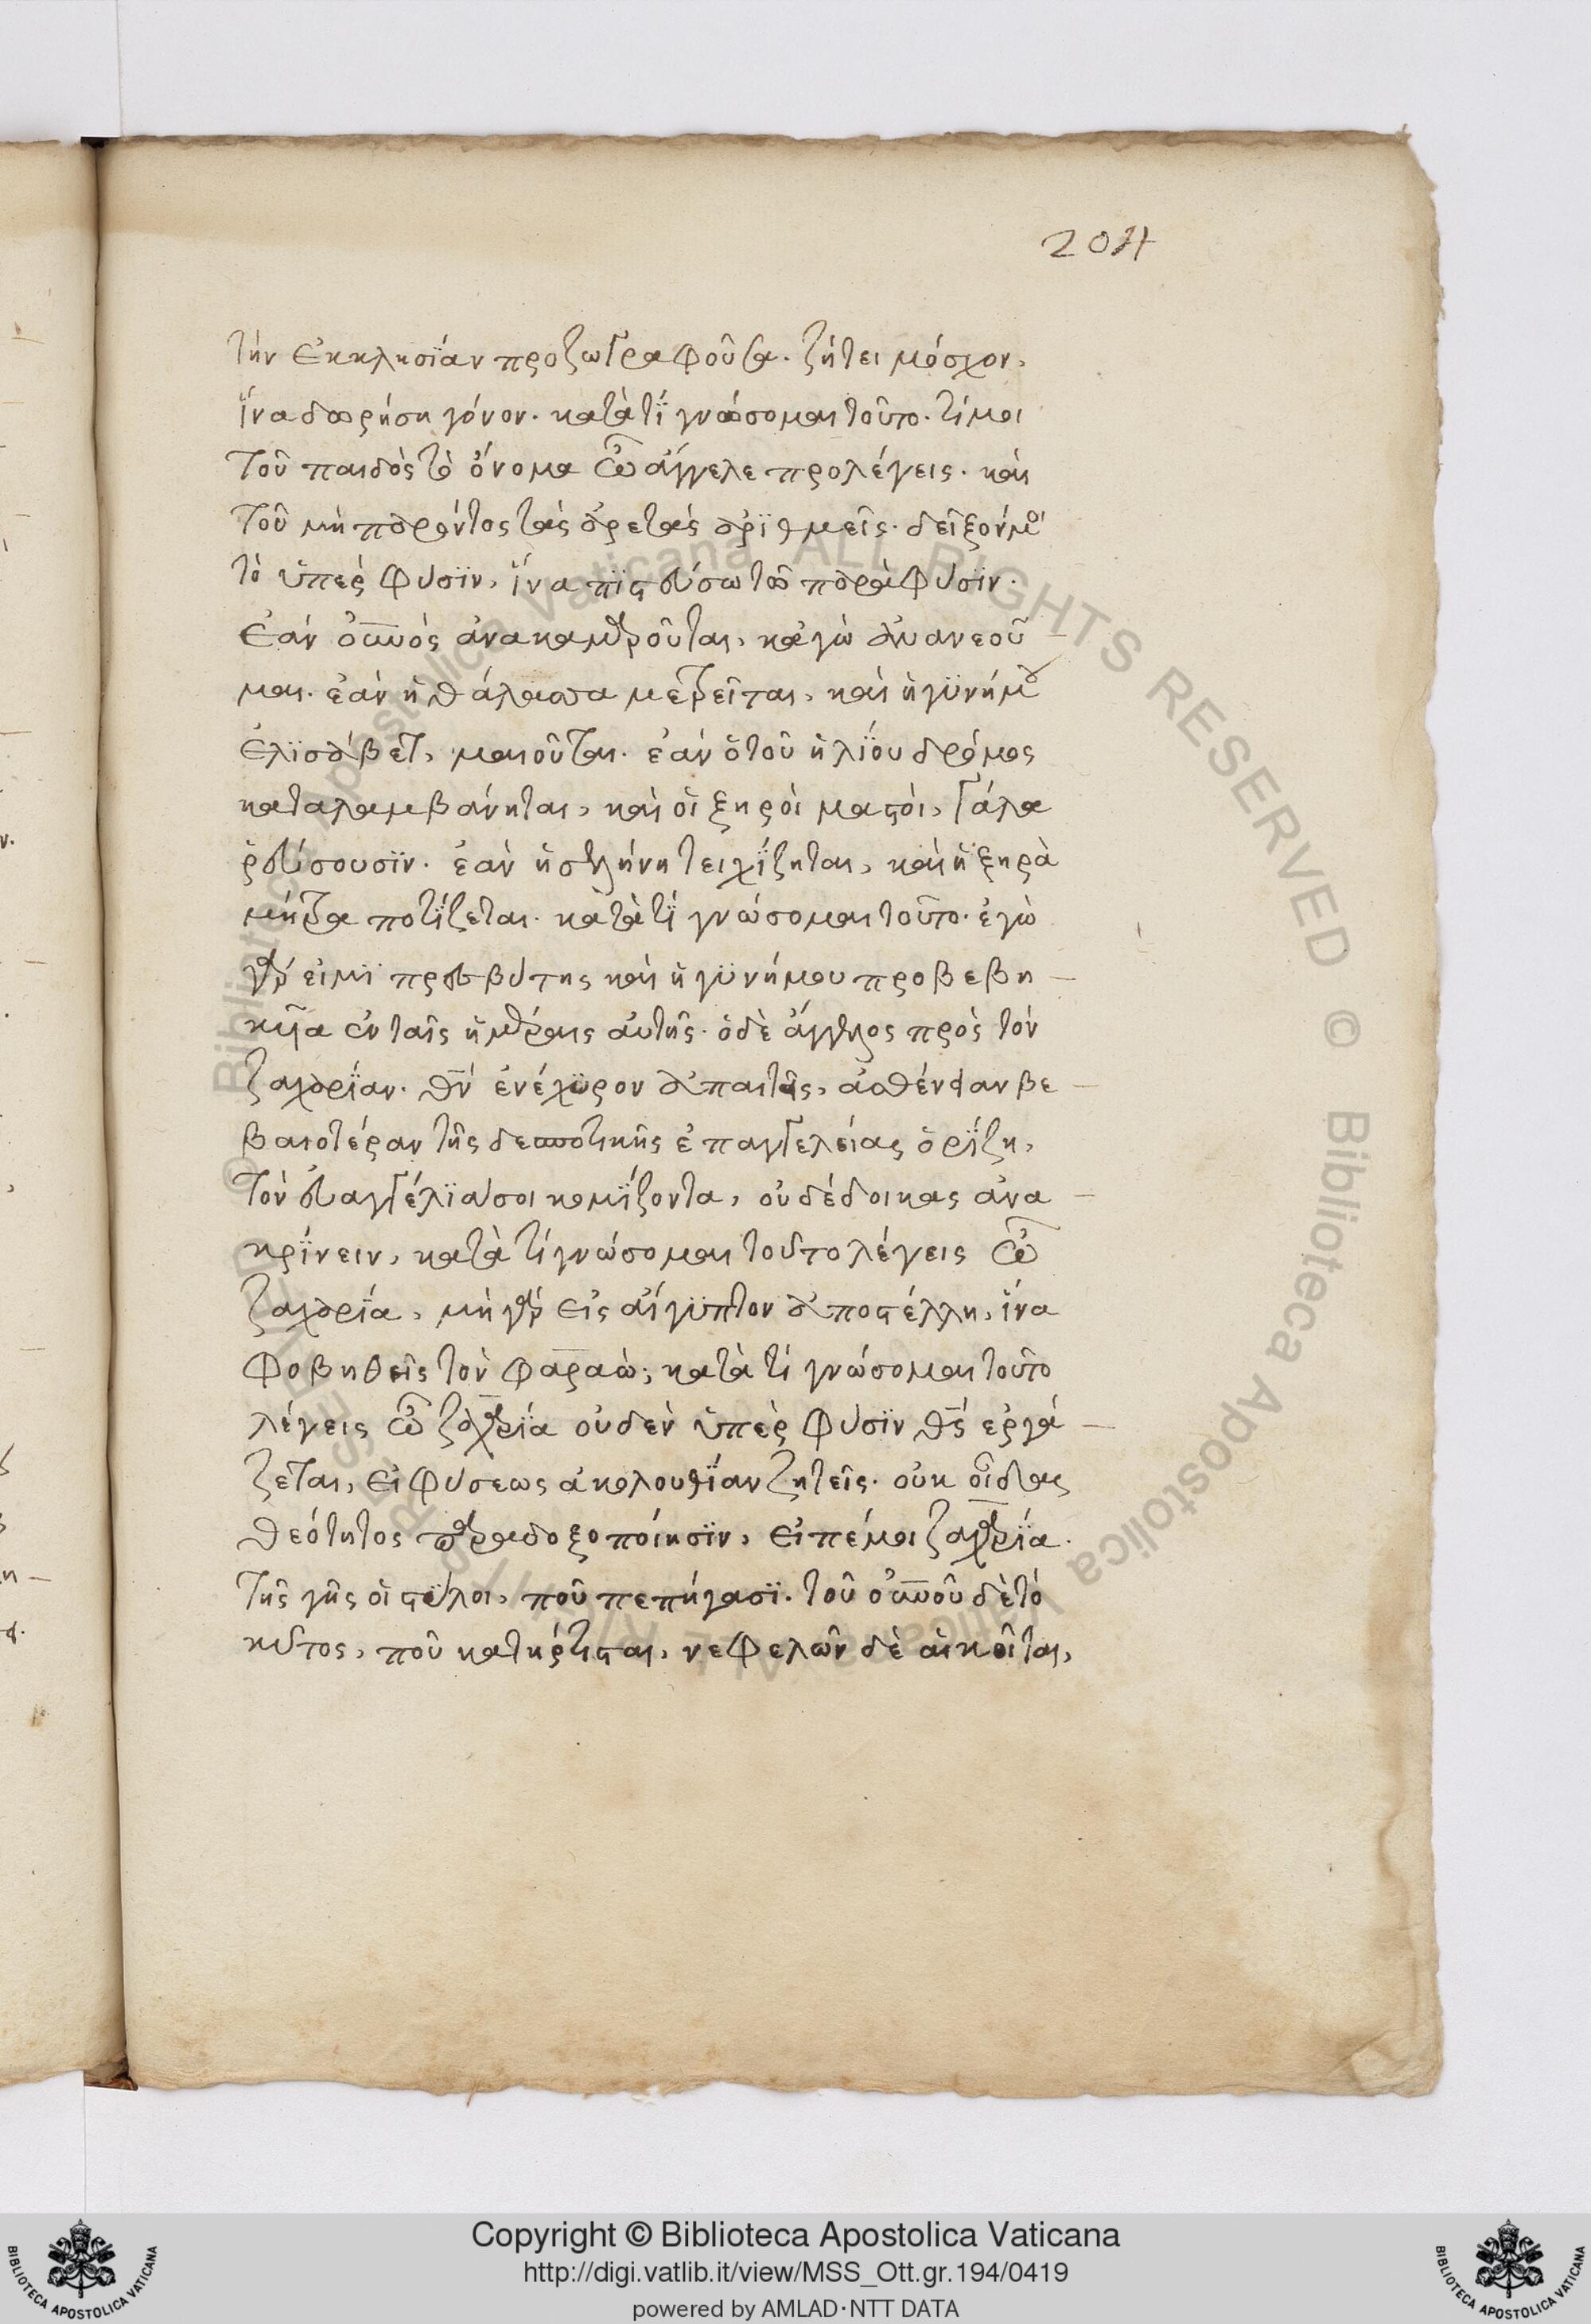 204
τὴν ἐκκλησίαν προζωγραφοῦσα. ζήτει μόσχον,
ἵνα δωρήση γόνον. κατὰ τί γνώσομαι τοῦτο. τί μοι
τοῦ παιδὸς τὸ ὄνομα ὦ ἄγγελε προλέγεις. καὶ
τοῦ μὴ παρόντος τὰς ἀρετὰς ἀριθμεῖς. δεῖξόν μοι
τὸ ὑπὲρ φύσιν, ἵνα πιστεύσω τῶ παρὰ φύσιν.
ἐὰν οὐνος ἀνακαιν
μαι. ἐὰν ἡ θάλασσα μετρεῖται, καὶ ἡ γυνή μου
ἐλισάβετ, μαιοῦται. ἐὰν ὁ τοῦ ἡλίου δρόμος
καταλαμβάνηται, καὶ οἱ ξηροὶ μαστοὶ, γάλα
ῥεύσουσιν. ἐὰν ἡ σελήνη τειχίζηται, καὶ ἡ ξηρὰ
μήτρα ποτίζεται. κατὰ τί γνώσομαι τοῦτο. ἐγὼ
γάρ εἰμι πρεσβύτης καὶ ἡ γυνή μου προβεβη
κυῖα ἐν ταῖς ἡμέραις αὐτῆς. ὁ δὲ ἄγγελος πρὸς τὸν
ζαχαρίαν. θν ἐνέχυρον ἀπαιτεῖς, αὐθένταν βε
βαιοτέραν τῆς δεσποτικῆς ἐπαγγελείας ὁρίζη,
τὸν εὐαγγέλιά σοι κομίζοντα, οὐ δέδοικας ἀνα
κρίνειν, κατὰ τί γνώσομαι τοῦτο λέγεις ὦ
ζαχαρία, μὴ γὰρ εἰς αἴγυπτον ἀποστέλλη, ἵνα
φοβηθεὶς τὸν φαραὼ; κατὰ τί γνώσομαι τοῦτο
λέγεις ὦ ζαχαρία οὐδὲν ὑπὲρ φύσιν θς ἐργά
ζεται, εἰ φύσεως ἀκολουθίαν ζητεῖς. οὐκ οἶδας
θεότητος παραδοξοποίησιν, εἰπέ μοι ζαχαρία.
τῆς γῆς οἱ στύλοι, ποῦ πεπήγασι. τοῦ οὐνοῦ δὲ τὸ
κύτος, ποῦ κατήρτισται, νεφελῶν δὲ αἱ κοῖται,
Copyright © Biblioteca Apostolica Vaticana
http://digi.vatlib.it/view/MSS_Ott.gr.194/0419
powered by AMLAD·NTT DATA